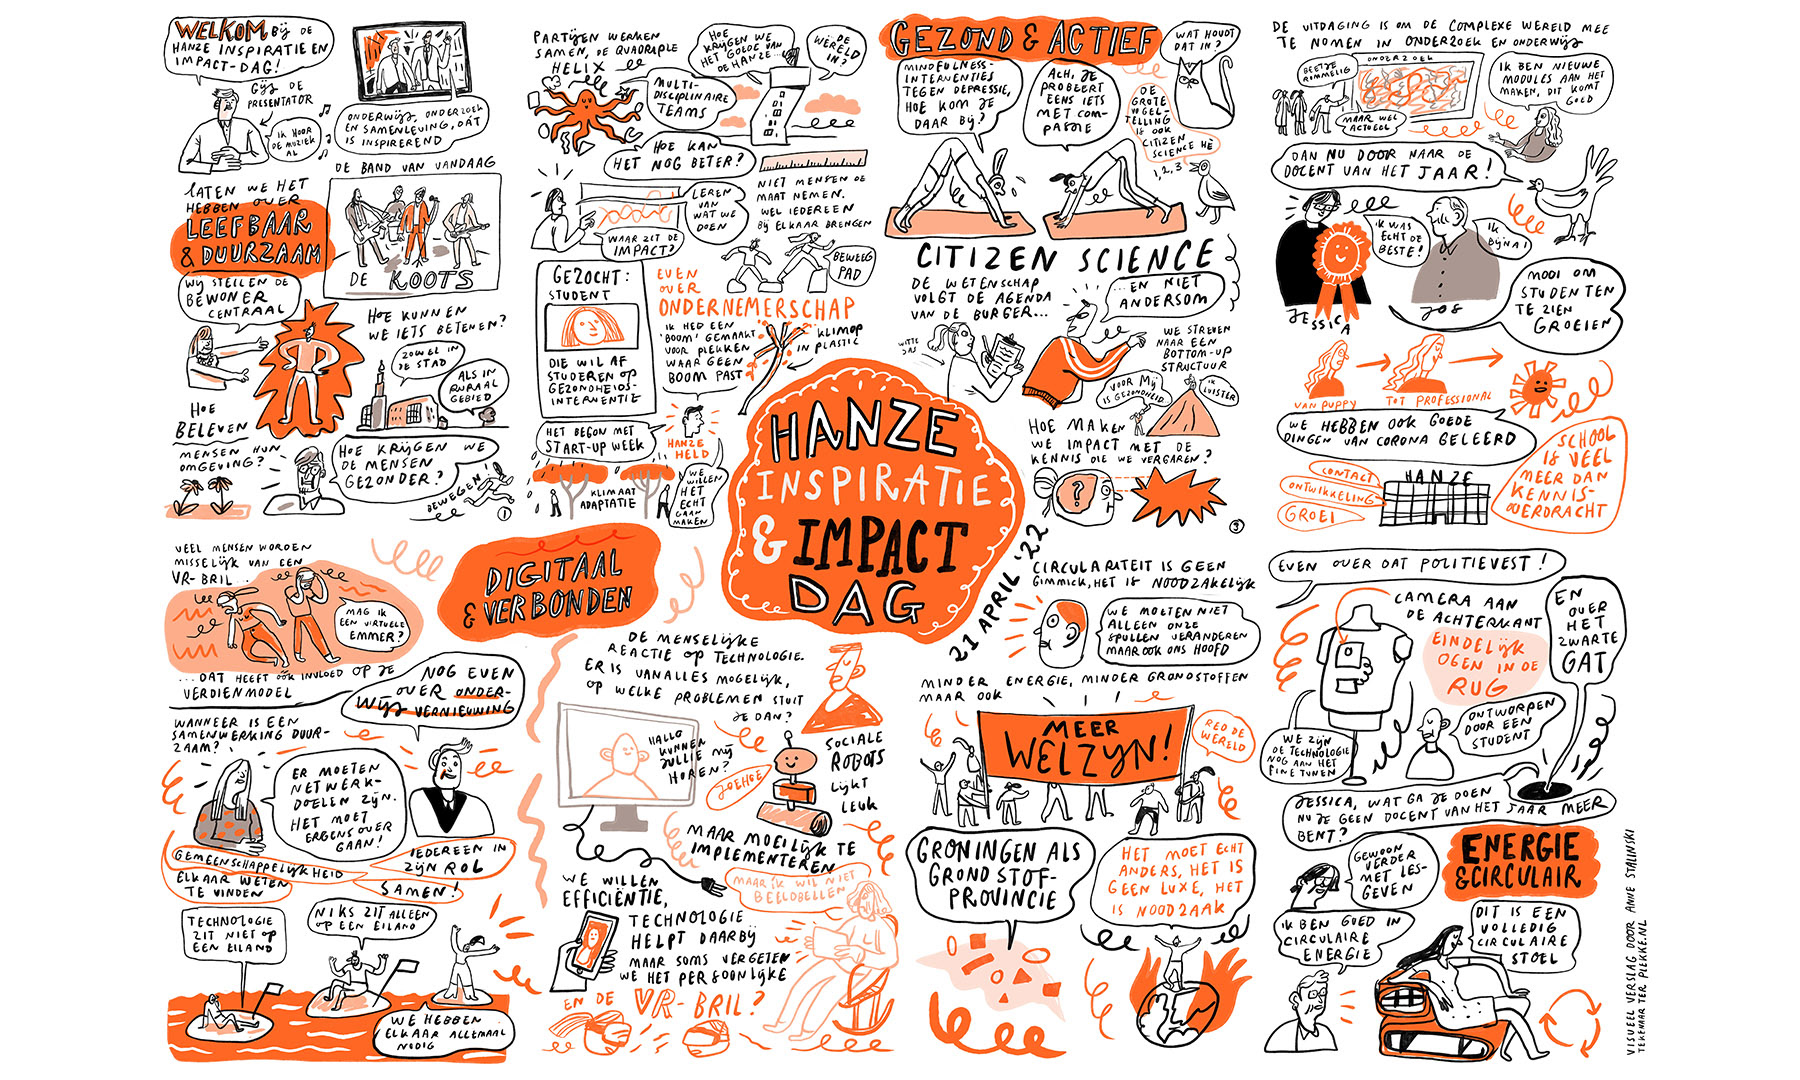 WELKOM BIJ DE
HANZE INSPIRATIE EN
IMPACT-DAG!
GIJS DE
PRESENTATOR
IK HOOR
DE MUZIEK
AL
ONDERWIJS, ONDERZOEK
EN SAMENLEVING, DÁT
IS INSPIREREND
DE BAND VAN VANDAAG
DE KOOTS
LATEN WE HET
HEBBEN OVER
LEEFBAAR
& DUURZAAM
WIJ STELLEN DE
BEWONER
CENTRAAL
HOE KUNNEN
WE IETS BETENEN?
ZOWEL IN
DE STAD
ALS IN
RURAAL
GEBIED
HOE
BELEVEN
MENSEN HUN
OMGEVING?
HOE KRIJGEN WE
DE MENSEN
GEZONDER?
BEWEGEN
1
PARTIJEN WERKEN
SAMEN, DE QUADRUPLE
HELIX
MULTI-
DISCIPLINAIRE
TEAMS
HOE
KRIJGEN WE
HET GOEDE VAN
DE HANZE...
...DE
WERELD
IN?
HOE KAN
HET NOG BETER?
LEREN
VAN
WAT WE
DOEN
WAAR ZIT DE
IMPACT?
NIET MENSEN DE
MAAT NEMEN.
WEL IEDEREEN
BIJ ELKAAR BRENGEN
BEWEEG
PAD
GEZOCHT:
STUDENT
DIE WIL AF
STUDEREN OP
GEZONDHEIDS-
INTERVENTIE
EVEN
OVER
ONDERNEMERSCHAP
IK HEB EEN
'BOOM' GEMAAKT
VOOR PLEKKEN
WAAR GEEN
BOOM PAST
KLIMOP
IN PLASTIC
HET BEGON MET
START-UP WEEK
HANZE
HELD
WE
WILLEN
HET
ECHT
GAAN
MAKEN
KLIMAAT
ADAPTATIE
GEZOND & ACTIEF
MINDFULNESS-
INTERVENTIES
TEGEN DEPRESSIE,
HOE KOM JE
DAAR BIJ?
ACH, JE
PROBEERT
EENS IETS
MET COM-
PASSIE
WAT HOUDT
DAT IN?
DE
GROTE
VOGEL-
TELLING
IS OOK
CITIZEN
SCIENCE HÈ
1, 2, 3
CITIZEN SCIENCE
DE WETENSCHAP
VOLGT DE AGENDA
VAN DE BURGER...
...EN NIET
ANDERSOM
WITTE
JAS
WE STREVEN
NAAR EEN
BOTTOM-UP
STRUCTUUR
VOOR MIJ
IS GEZONDHEID..
IK
LUISTER
HOE MAKEN
WE IMPACT MET DE
KENNIS DIE WE VERGAREN?
?
3
DE UITDAGING IS OM DE COMPLEXE WERELD MEE
TE NOMEN IN ONDERZOEK EN ONDERWIJS
ONDERZOEK
BEETJE
RIMMELIG
MAAR WEL
ACTUEEL
IK BEN NIEUWE
MODULES AAN HET
MAKEN, DIT KOMT
GOED
DAN NU DOOR NAAR DE
DOCENT VAN HET JAAR!
IK WAS
ECHT DE
BESTE!
IK
BIJNA!
JESSICA
JOS
MOOI OM
STUDENTEN
TE ZIEN
GROEIEN
VAN PUPPY
TOT PROFESSIONAL
WE HEBBEN OOK GOEDE
DINGEN VAN CORONA GELEERD
CONTACT
ONTWIKKELING
GROEI
HANZE
SCHOOL
IS VEEL
MEER DAN
KENNIS-
OVERDRACHT
HANZE
INSPIRATIE
& IMPACT
DAG
21 APRIL '22
VEEL MENSEN WORDEN
MISSELIJK VAN EEN
VR-BRIL...
MAG IK
EEN VIRTUELE
EMMER?
...DAT HEEFT ÓÓK INVLOED OP JE
VERDIENMODEL
DIGITAAL
& VERBONDEN
NOG EVEN
OVER ONDER-
WIJS VERNIEUWING
WANNEER IS EEN
SAMENWERKING DUUR-
ZAAM?
ER MOETEN
NETWERK-
DOELEN ZIJN.
HET MOET
ERGENS OVER
GAAN!
GEMEENSCHAPPELIJKHEID
IEDEREEN IN
ZIJN ROL
ELKAAR WETEN
TE VINDEN
SAMEN!
TECHNOLOGIE
ZIT NIET OP
EEN EILAND
NIKS ZIT ALLEEN
OP EEN EILAND
WE HEBBEN
ELKAAR ALLEMAAL
NODIG
DE MENSELIJKE
REACTIE OP TECHNOLOGIE.
ER IS VAN ALLES MOGELIJK,
OP WELKE PROBLEMEN STUIT
JE DAN?
HALLO
KUNNEN
JULLIE MIJ
HOREN?
JOEHOE
SOCIALE
ROBOTS
LIJKT
LEUK
MAAR MOEILIJK TE
IMPLEMENTEREN
WE WILLEN
EFFICIËNTIE,
MAAR IK WIL NIET
BEELDBELLEN
TECHNOLOGIE
HELPT DAARBIJ
MAAR SOMS VERGETEN
WE HET PERSOONLIJKE
EN DE VR-BRIL?
CIRCULARITEIT IS GEEN
GIMMICK, HET IS NOODZAKELIJK
WE MOETEN NIET
ALLEEN ONZE
SPULLEN VERANDEREN
MAAR OOK ONS HOOFD
MINDER ENERGIE, MINDER GRONDSTOFFEN
MAAR OOK
MEER
WELZIJN!
RED DE
WERELD
GRONINGEN ALS
GRONDSTOF-
PROVINCIE
HET MOET ECHT
ANDERS, HET IS
GEEN LUXE, HET
IS NOODZAAK
EVEN OVER DAT POLITIEVEST!
CAMERA AAN
DE ACHTERKANT
EINDELIJK
OGEN IN DE
RUG
EN
OVER
HET
ZWARTE
GAT
WE ZIJN
DE TECHNOLOGIE
NOG AAN HET
FINETUNEN
ONTWORPEN
DOOR EEN
STUDENT
JESSICA, WAT GA JE DOEN
NU JE GEEN DOCENT VAN HET JAAR MEER
BENT?
GEWOON
VERDER
MET LES-
GEVEN
ENERGIE
& CIRCULAIR
IK BEN GOED IN
CIRCULAIRE
ENERGIE
DIT IS EEN
VOLLEDIG
CIRCULAIRE
STOEL
VISUEEL VERSLAG DOOR ANNE STALINSKI
TEKENAAR TER PLEKKE.NL